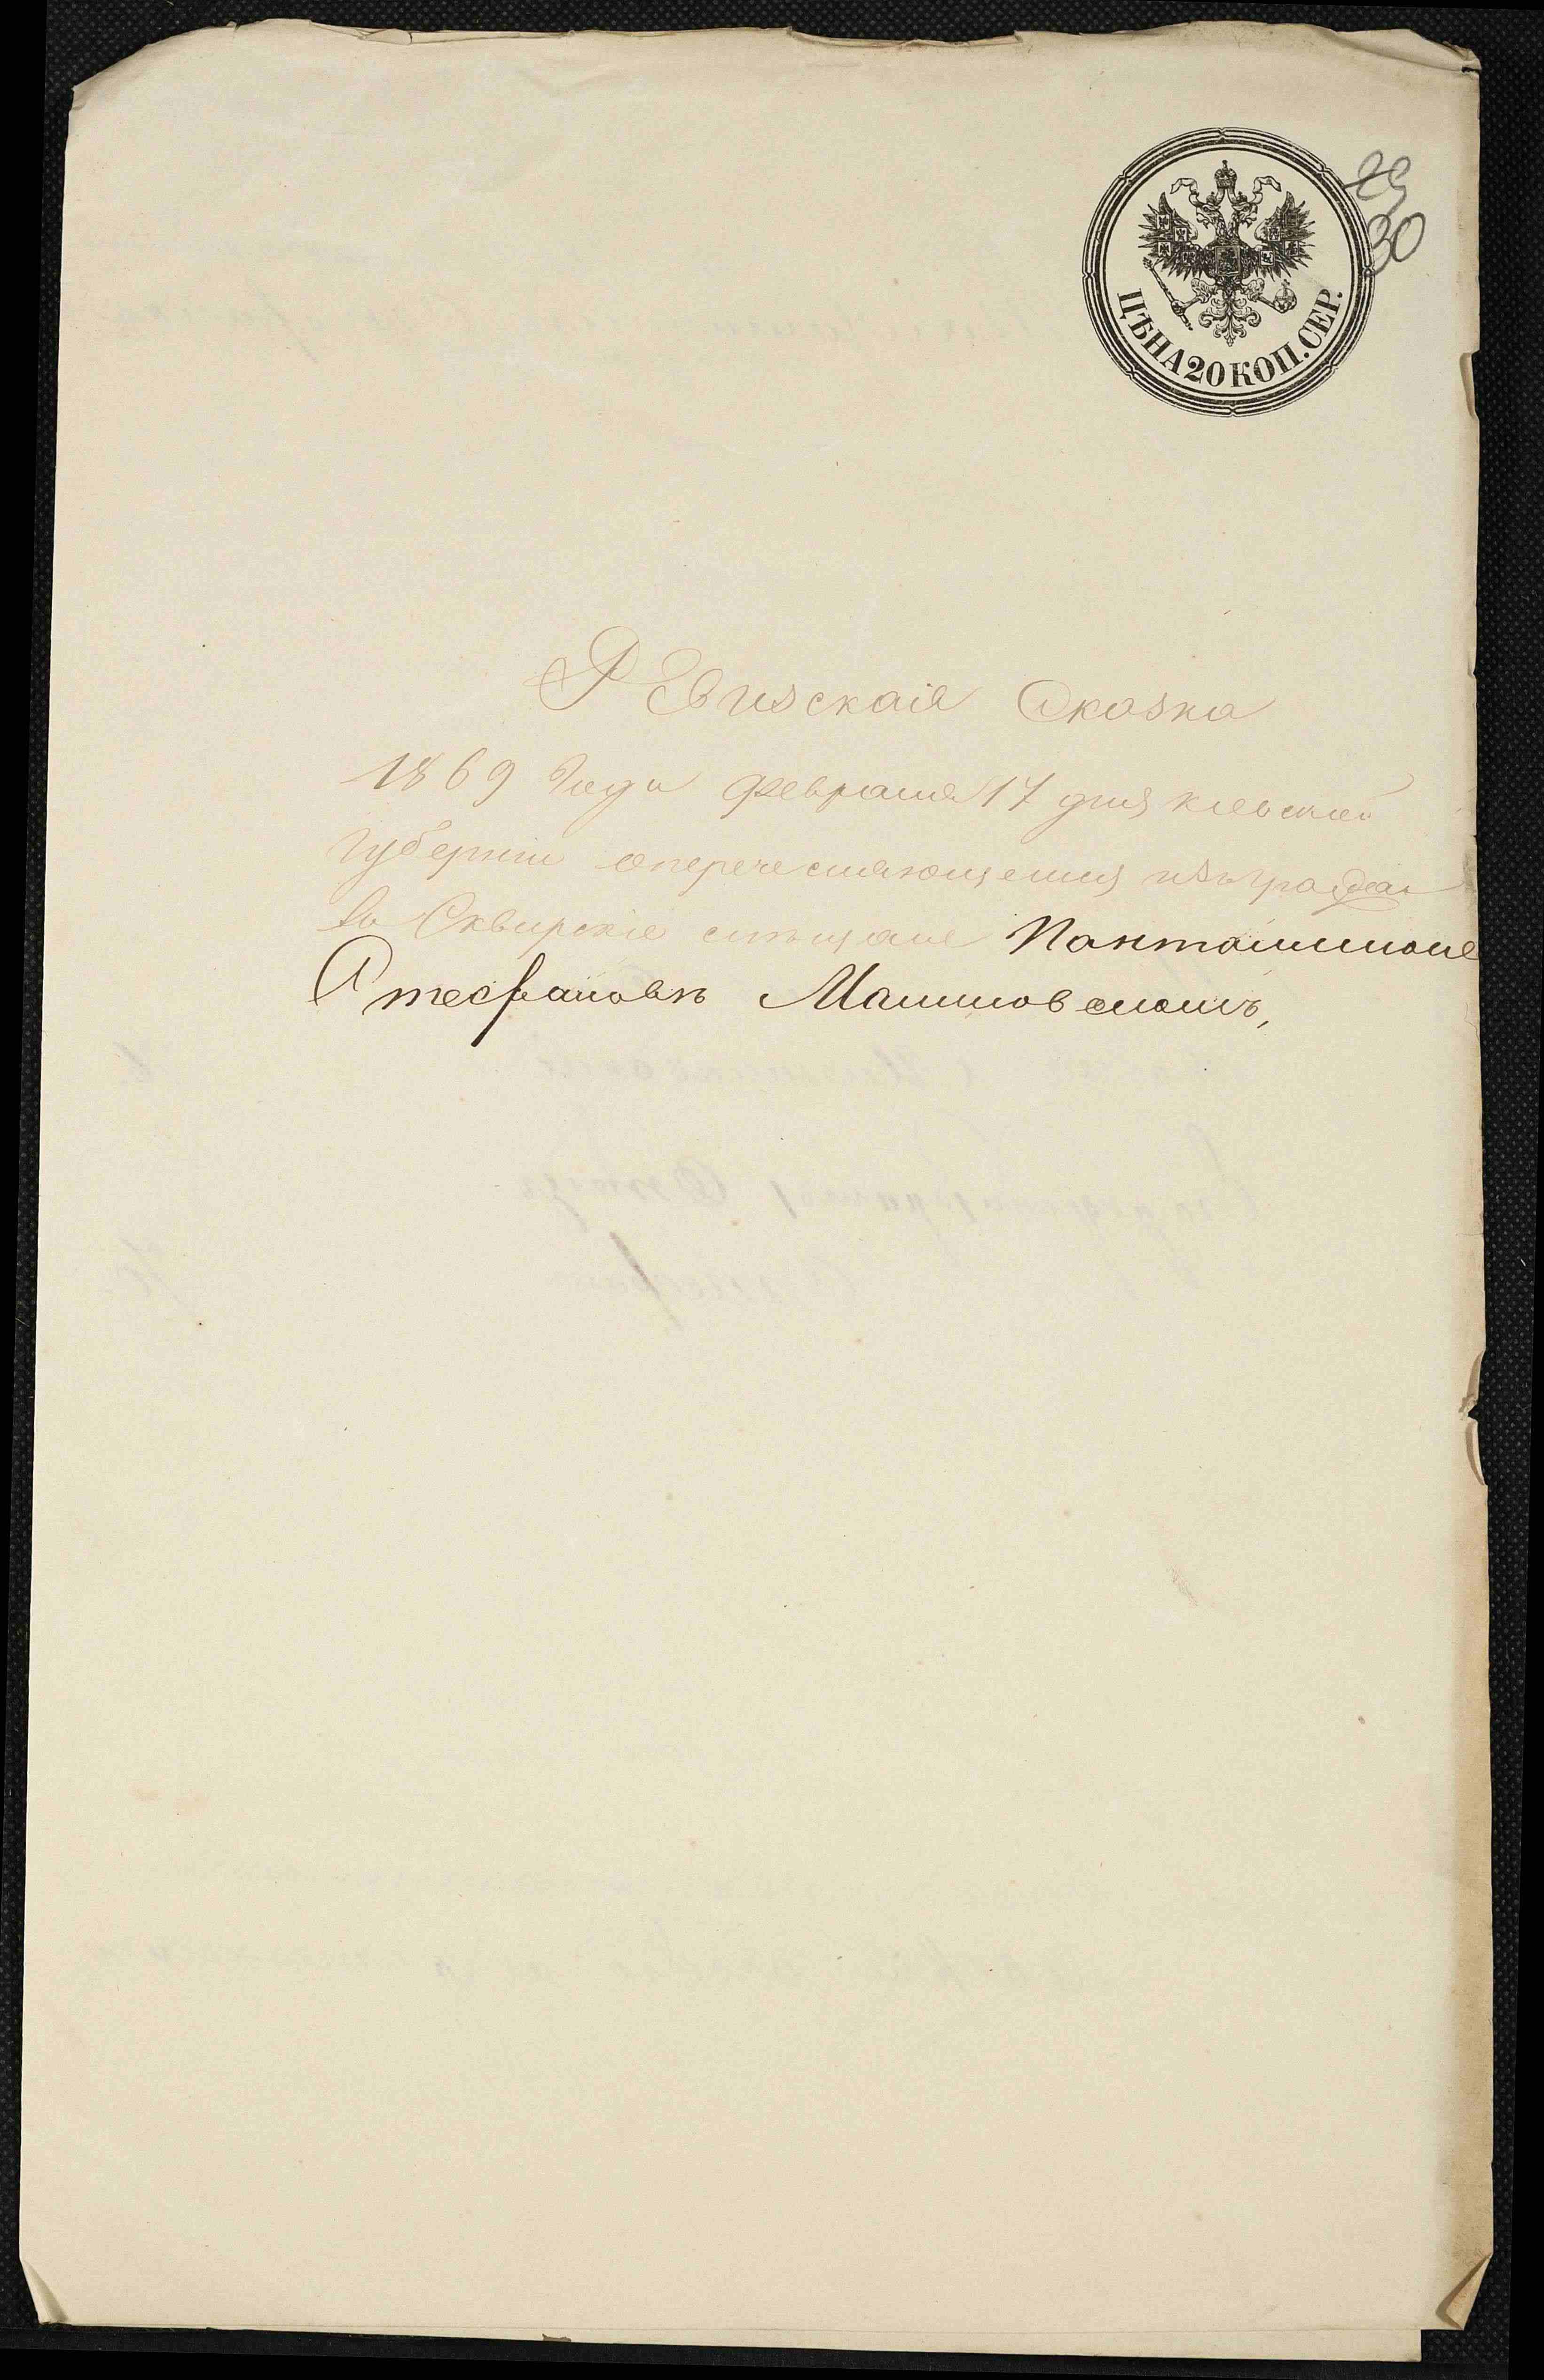 ЦѢНА 20 КОП. СЕР.
29
30
Ревизская Сказка
1869 Года февраля 17 дня киевской
губерніи оперечесляющемся изъ граждан
въ Сквирскіе мѣщане Пантолимоне
Стефановѣ Малиновскомъ,